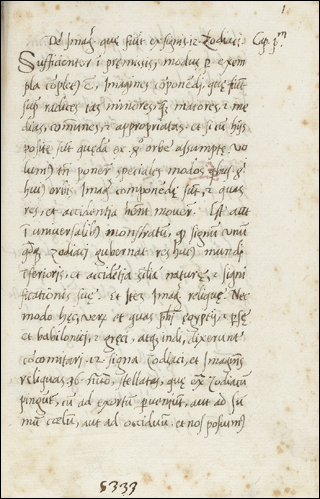 1
De Imag. que sunt ex signis 12 Zodiaci Cap. pm
Sufficienter i premissis, modus p exem
pla coplec) e, Imagines coponedi, que sunt
sup radices tas minores, q maiores, i me
dias, comunes, i appropriatas. et si cu hijs
posite sut queda ex orbe assumpte, vo
lum) tn poner speciales modos
hui) orbis Imag. componedi sut, i quas
res, et accidentia hom) mouer).
i uniuersalib) monstratu, signu unu
zodiaci gubernat res hui) mundi
iferioris, et accidetia silia nature, i signi
ficationis sue. Et Ites Imag. relique. Nec
modo hec, veru et quas egyptij,
et babilonici, i greci, atq indi, dixerunt
cocomitari 12 signa zodiaci, et Imagines
reliquas 36 stellatas, que zodiacu
pingut, cu ad exortu pueniut, aut ad su
mu coelum, aut ad occiduu, et nos posuim)
5333